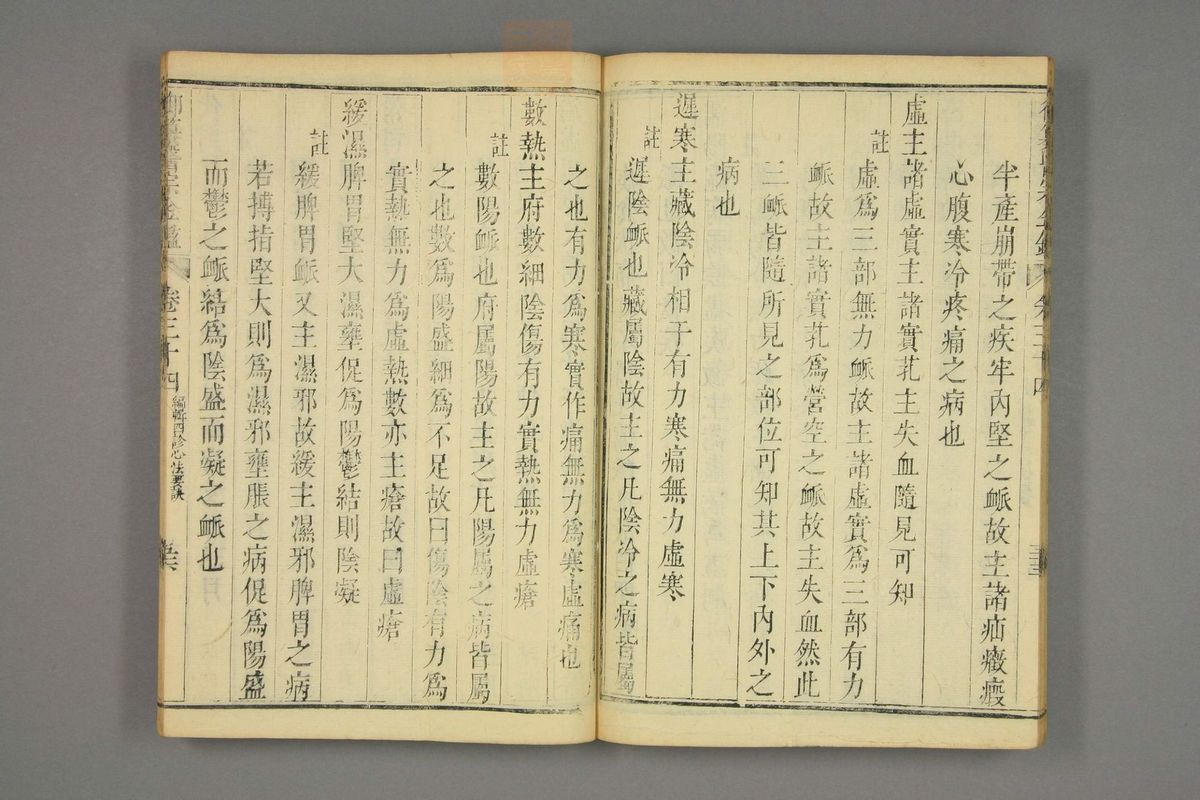 半產崩帶之疾牢內堅之䘑故主諸疝癥瘕
心腹寒冷疼痛之病也
虛主諸虛實主諸實芤主失血隨見可知
註
虛為三部無力䘑故主諸虛實為三部有力
䘑故主諸實芤為營空之䘑故主失血然此
三䘑皆隨所見之部位可知其上下內外之
病也
遲寒主藏陰冷相干有力寒痛無力虛寒
註
遲陰䘑也藏屬陰故主之凡陰冷之病皆屬
之也有力為寒實作痛無力為寒虛痛也
數熱主府數細陰傷有力實熱無力虛瘡
註
數陽䘑也府屬陽故主之凡陽屬之病皆屬
之也數為陽盛細為不足故曰傷陰有力為
實熱無力為虛熱數亦主瘡故曰虛瘡
緩濕脾胃堅大濕壅促為陽鬱結則陰凝
註
緩脾胃䘑又主濕邪故緩主濕邪脾胃之病
若搏指堅大則為濕邪壅脹之病促為陽盛
而鬱之䘑結為陰盛而凝之䘑也
卷三十四
編輯四診心法要訣